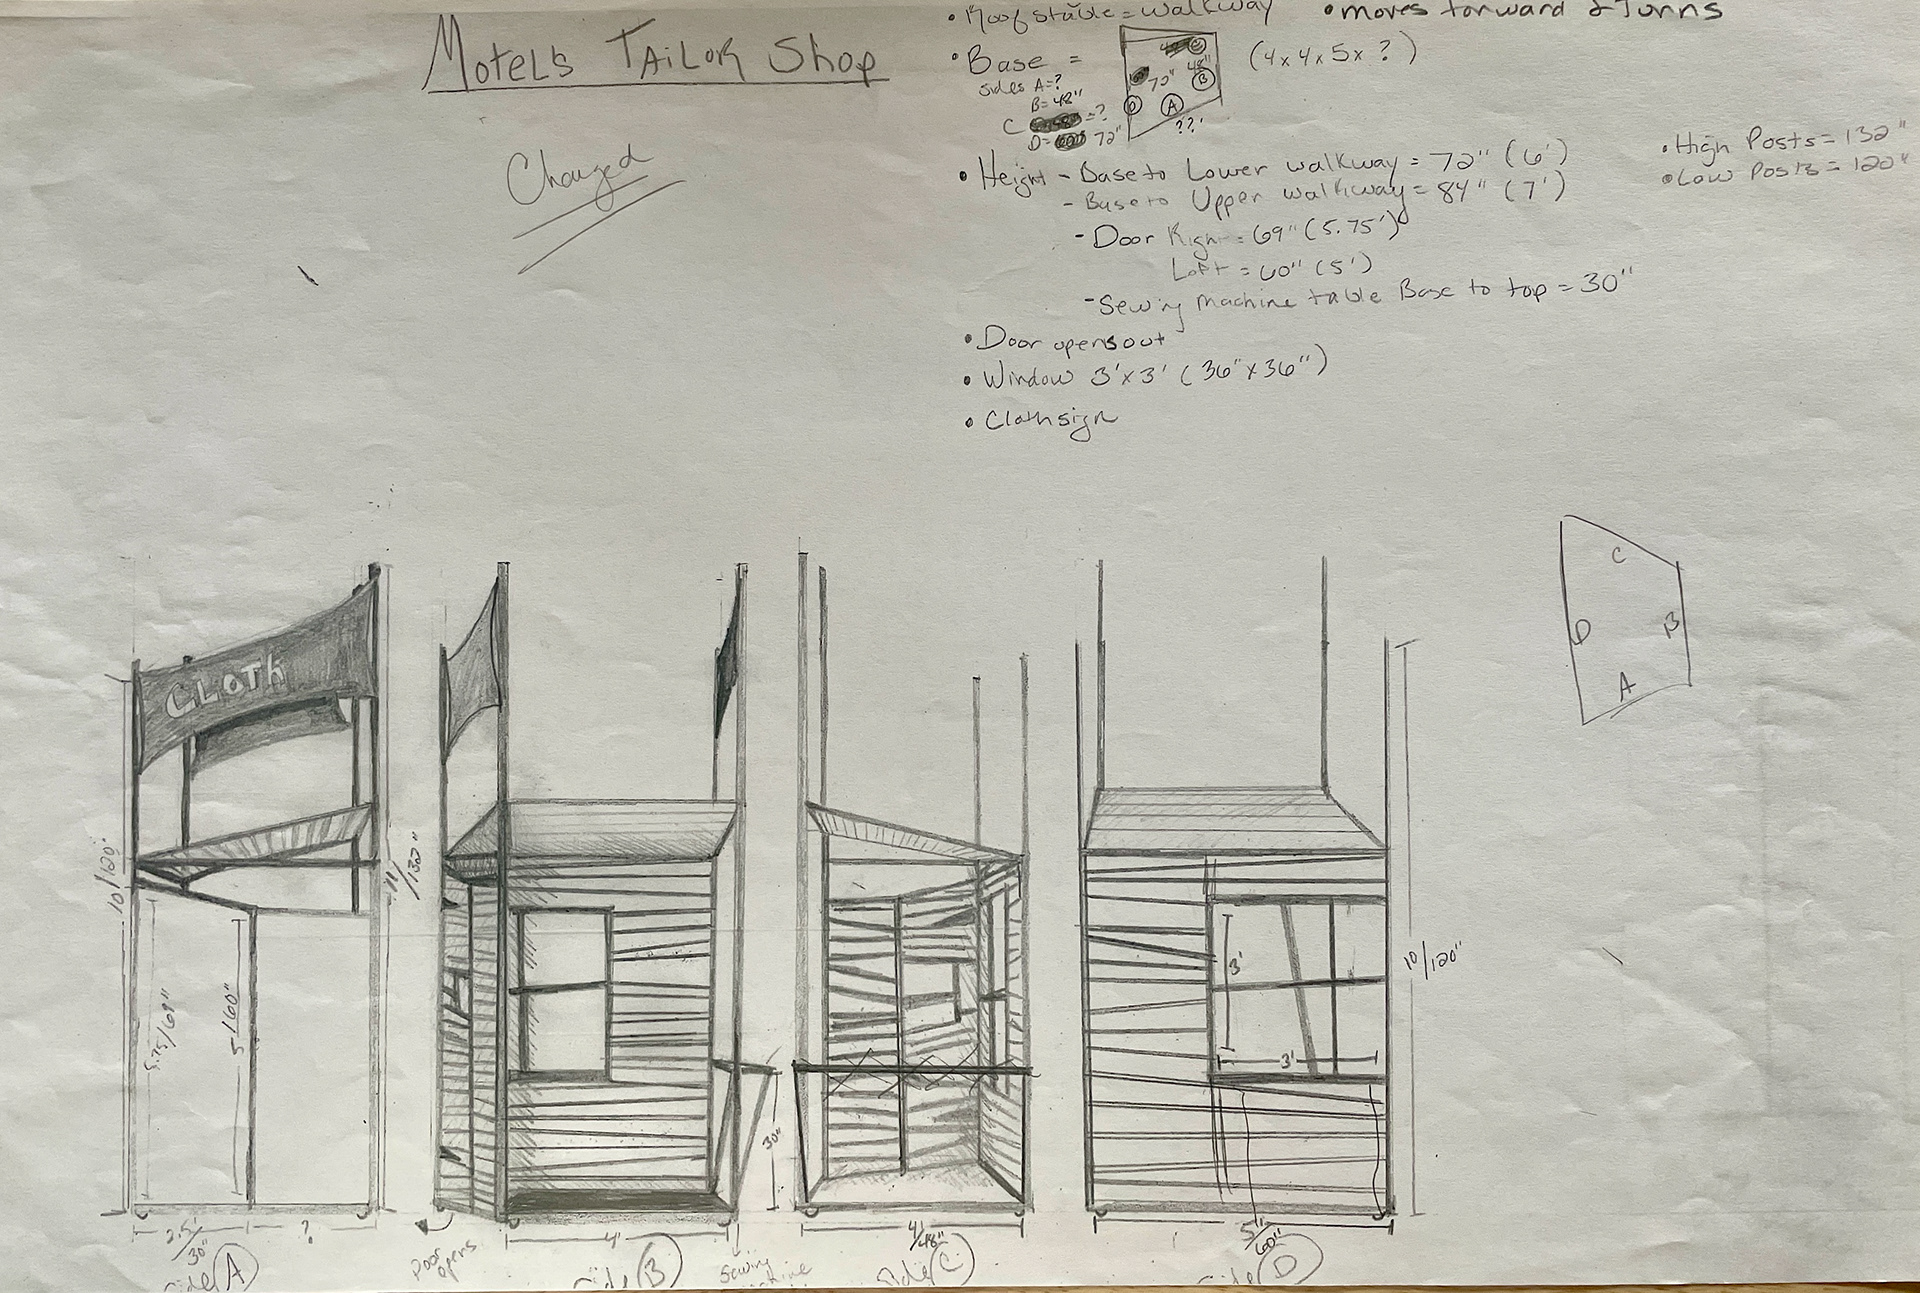 Motels Tailor Shop
Changed
• Roof stable = walkway
• moves forward & Turns
• Base =
(4x4x5x ?)
sides A=?
B=48"
C =?
D= 72"
C
48"
72"
B
D
A
??'
• Height - Base to Lower walkway = 72" (6')
- Base to Upper walkway = 84" (7')
- Door Right = 69" (5.75')
Left = 60" (5')
- Sewing Machine table Base to top = 30"
• High Posts = 132"
• Low Posts = 120"
• Door opens out
• Window 3'x3' (36"x36")
• Cloth sign
C
D
B
A
CLOTH
10/120"
/132"
5.75/69"
5/60"
2.5'/30"
?
Side A
Door opens
4'
Side B
30"
Sewing
machine
4'/48"
Side C
3'
3'
10/120"
5'/60"
Side D